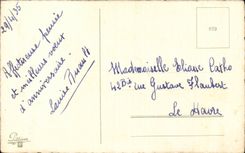 29/4/35
Affectueuse pensée
et meilleurs vœux
d'anniversaire
Louise
Mademoiselle Eliane Carho
42Bis rue Gustave Flaubert
Le Havre